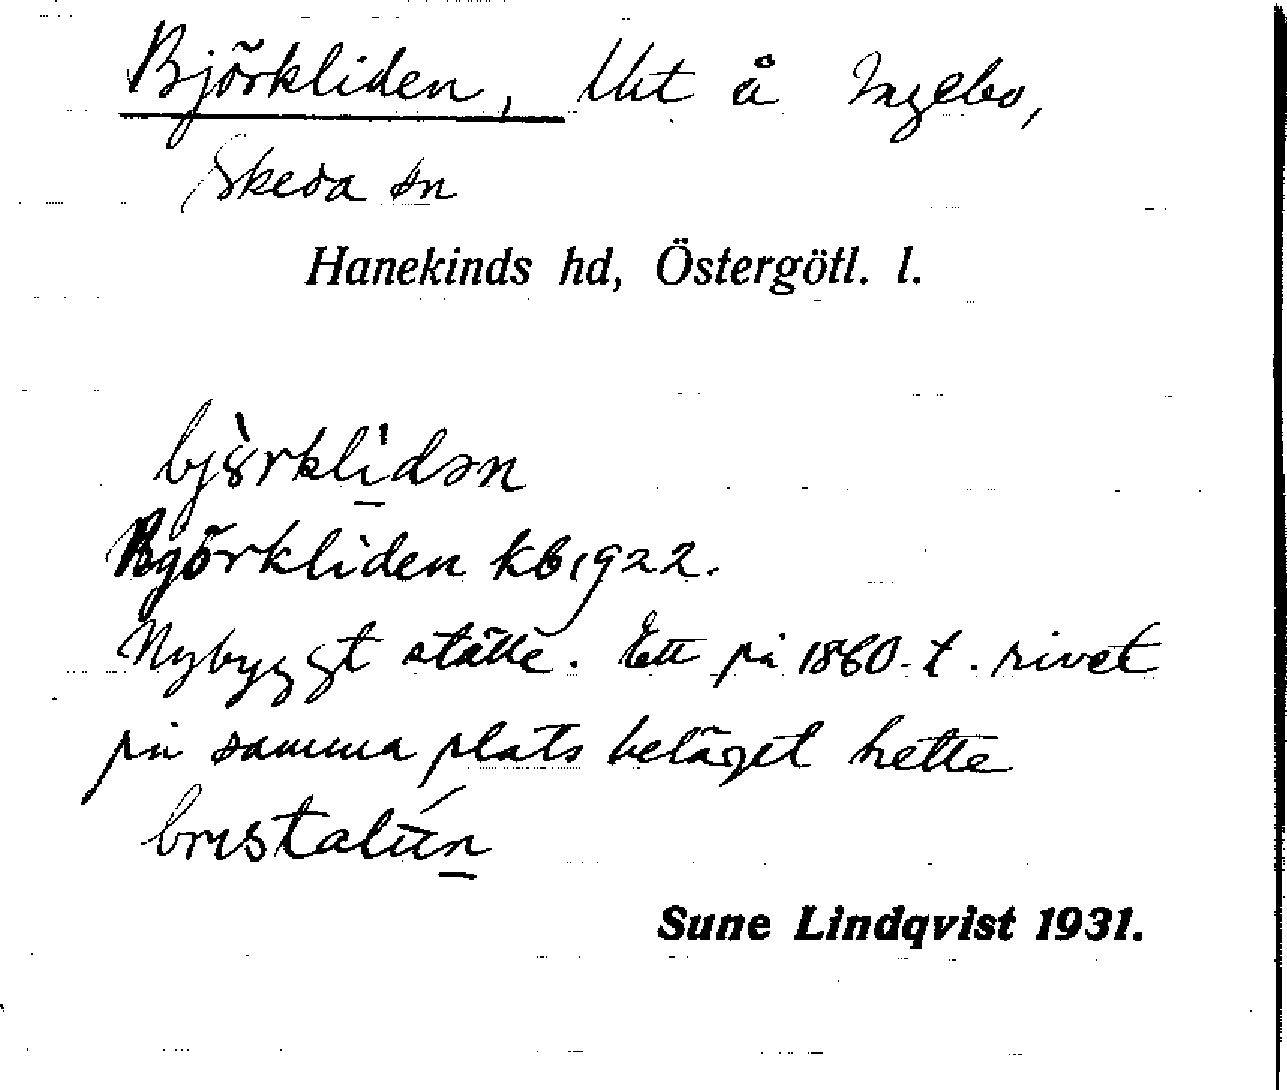 Björkliden, Uut å Ingebo,
Skeda sn
Hanekinds hd, Östergötl. l.
bjö̀rklìdən
Björkliden kb 1922.
Nybyggt ställe. Ett på 1860-t. rivet
på samma plats beläget hette